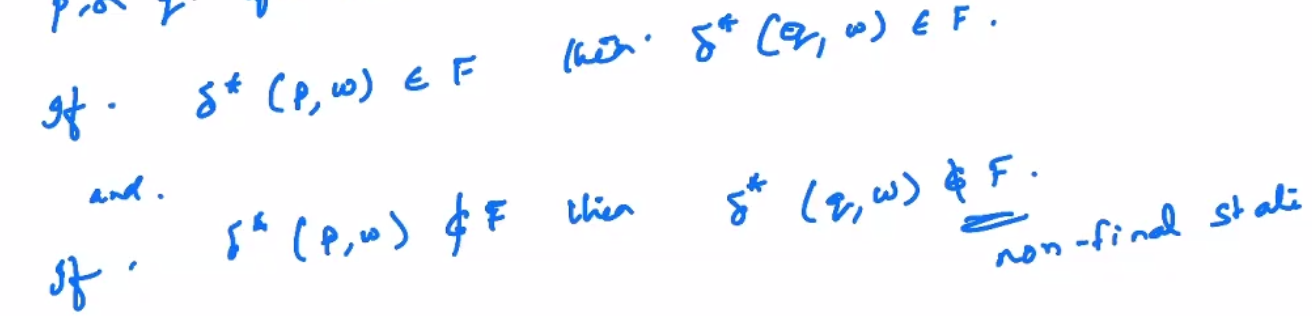 If. δ* (p, w) ∈ F then. δ* (q, w) ∈ F.
and.
If. δ* (p, w) ∉ F then δ* (q, w) ∉ F.
non-final state